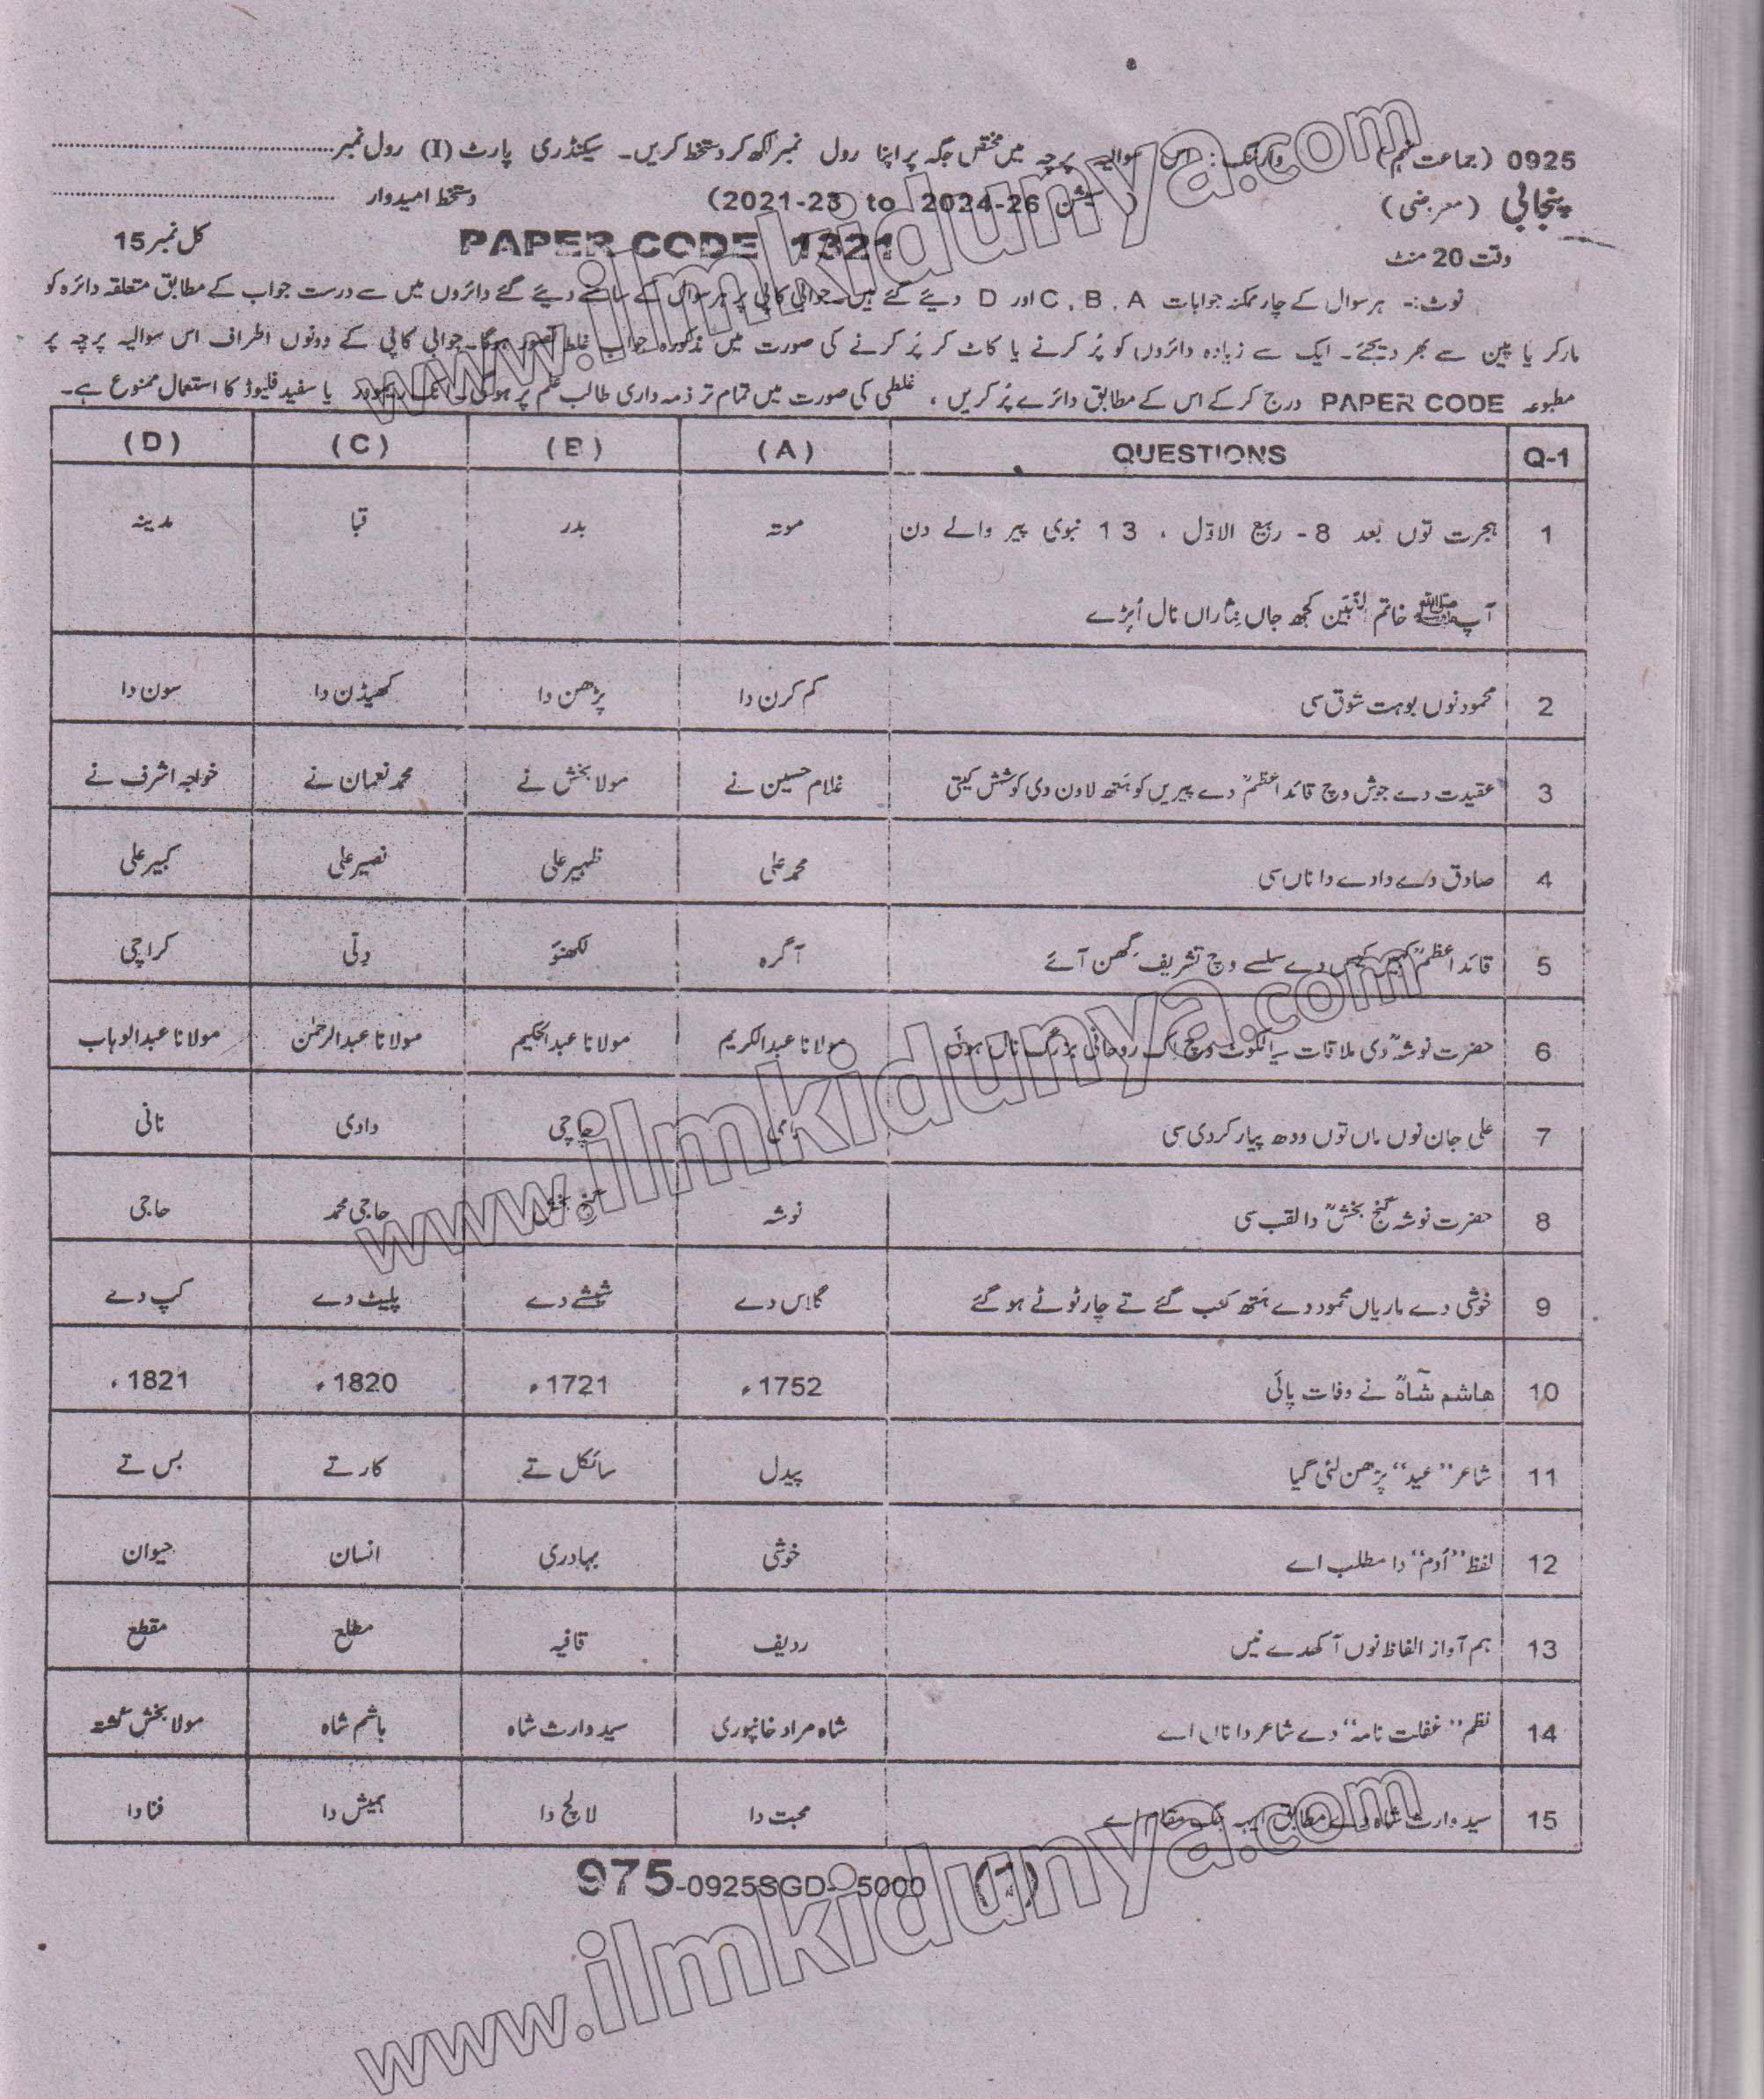 0925 (جماعت نہم) وارننگ: اس سوالیہ پرچہ میں مختص جگہ پر اپنا رول نمبر لکھ کر دستخط کریں۔ سیکنڈری پارٹ (I) رول نمبر
پنجابی (معروضی) سیشن (2021-23 to 2024-26) دستخط امیدوار
وقت 20 منٹ PAPER CODE 1321 کل نمبر 15
نوٹ:- ہر سوال کے چار ممکنہ جوابات A ، B ، C اور D دیئے گئے ہیں۔ جوابی کاپی پر ہر سوال کے سامنے دیئے گئے دائروں میں سے درست جواب کے مطابق متعلقہ دائرہ کو
مارکر یا پین سے بھر دیجئے۔ ایک سے زیادہ دائروں کو پُر کرنے یا کاٹ کر پُر کرنے کی صورت میں مذکورہ جواب غلط تصور ہوگا۔ جوابی کاپی کے دونوں اطراف اس سوالیہ پرچہ پر
مطبوعہ PAPER CODE درج کر کے اس کے مطابق دائرے پُر کریں ، غلطی کی صورت میں تمام تر ذمہ داری طالب علم پر ہوگی۔ انک ریموور یا سفید فلیوڈ کا استعمال ممنوع ہے۔
Q-1 QUESTIONS (A) (B) (C) (D)
1 ہجرت توں بعد 8- ربیع الاوّل ، 13 نبوی پیر والے دن موتہ بدر قبا مدینہ
آپ ﷺ خاتم النّبیّین کجھ جاں نِثاراں نال اُپڑے
2 محمود نوں بوہت شوق سی کم کرن دا پڑھن دا کھیڈن دا سون دا
3 عقیدت دے جوش وچ قائداعظمؒ دے پیریں کو ہَتھ لاون دی کوشش کیتی غلام حسین نے مولا بخش نے محمد نعمان نے خواجہ اشرف نے
4 صادق دے دادے دا ناں سی محمد علی ظہیر علی نصیر علی کبیر علی
5 قائداعظمؒ کیس دے سلسلے وچ تشریف گھن آئے آگرہ لکھنؤ دِلّی کراچی
6 حضرت نوشہؒ دی ملاقات سیالکوٹ وچ اک روحانی بزرگ نال ہوئی مولانا عبدالکریم مولانا عبدالحکیم مولانا عبدالرحمٰن مولانا عبدالوہاب
7 علی جان نوں ماں توں ودھ پیار کردی سی چاچی دادی نانی
8 حضرت نوشہ گنج بخشؒ دا لقب سی نوشہ گنج بخش حاجی محمد حاجی
9 خوشی دے ماریاں محمود دے ہَتھ کنب گئے تے چار ٹوٹے ہو گئے گلاس دے شیشے دے پلیٹ دے کپ دے
10 ہاشم شاہؒ نے وفات پائی 1752ء 1721ء 1820ء 1821ء
11 شاعر "عید" پڑھن لئی گیا پیدل سائیکل تے کار تے بس تے
12 لفظ "اُدم" دا مطلب اے خوشی بہادری انسان حیوان
13 ہم آواز الفاظ نوں آکھدے نیں ردیف قافیہ مطلع مقطع
14 نظم "غفلت نامہ" دے شاعر دا ناں اے شاہ مراد خانپوری سید وارث شاہ ہاشم شاہ مولا بخش کشتہ
15 سید وارث شاہ دے مطابق ایہہ جگ مقام اے محبت دا لالچ دا ہمیش دا فنا دا
975-0925SGD- 5000 (1)
www.ilmkidunya.com
www.ilmkidunya.com
www.ilmkidunya.com